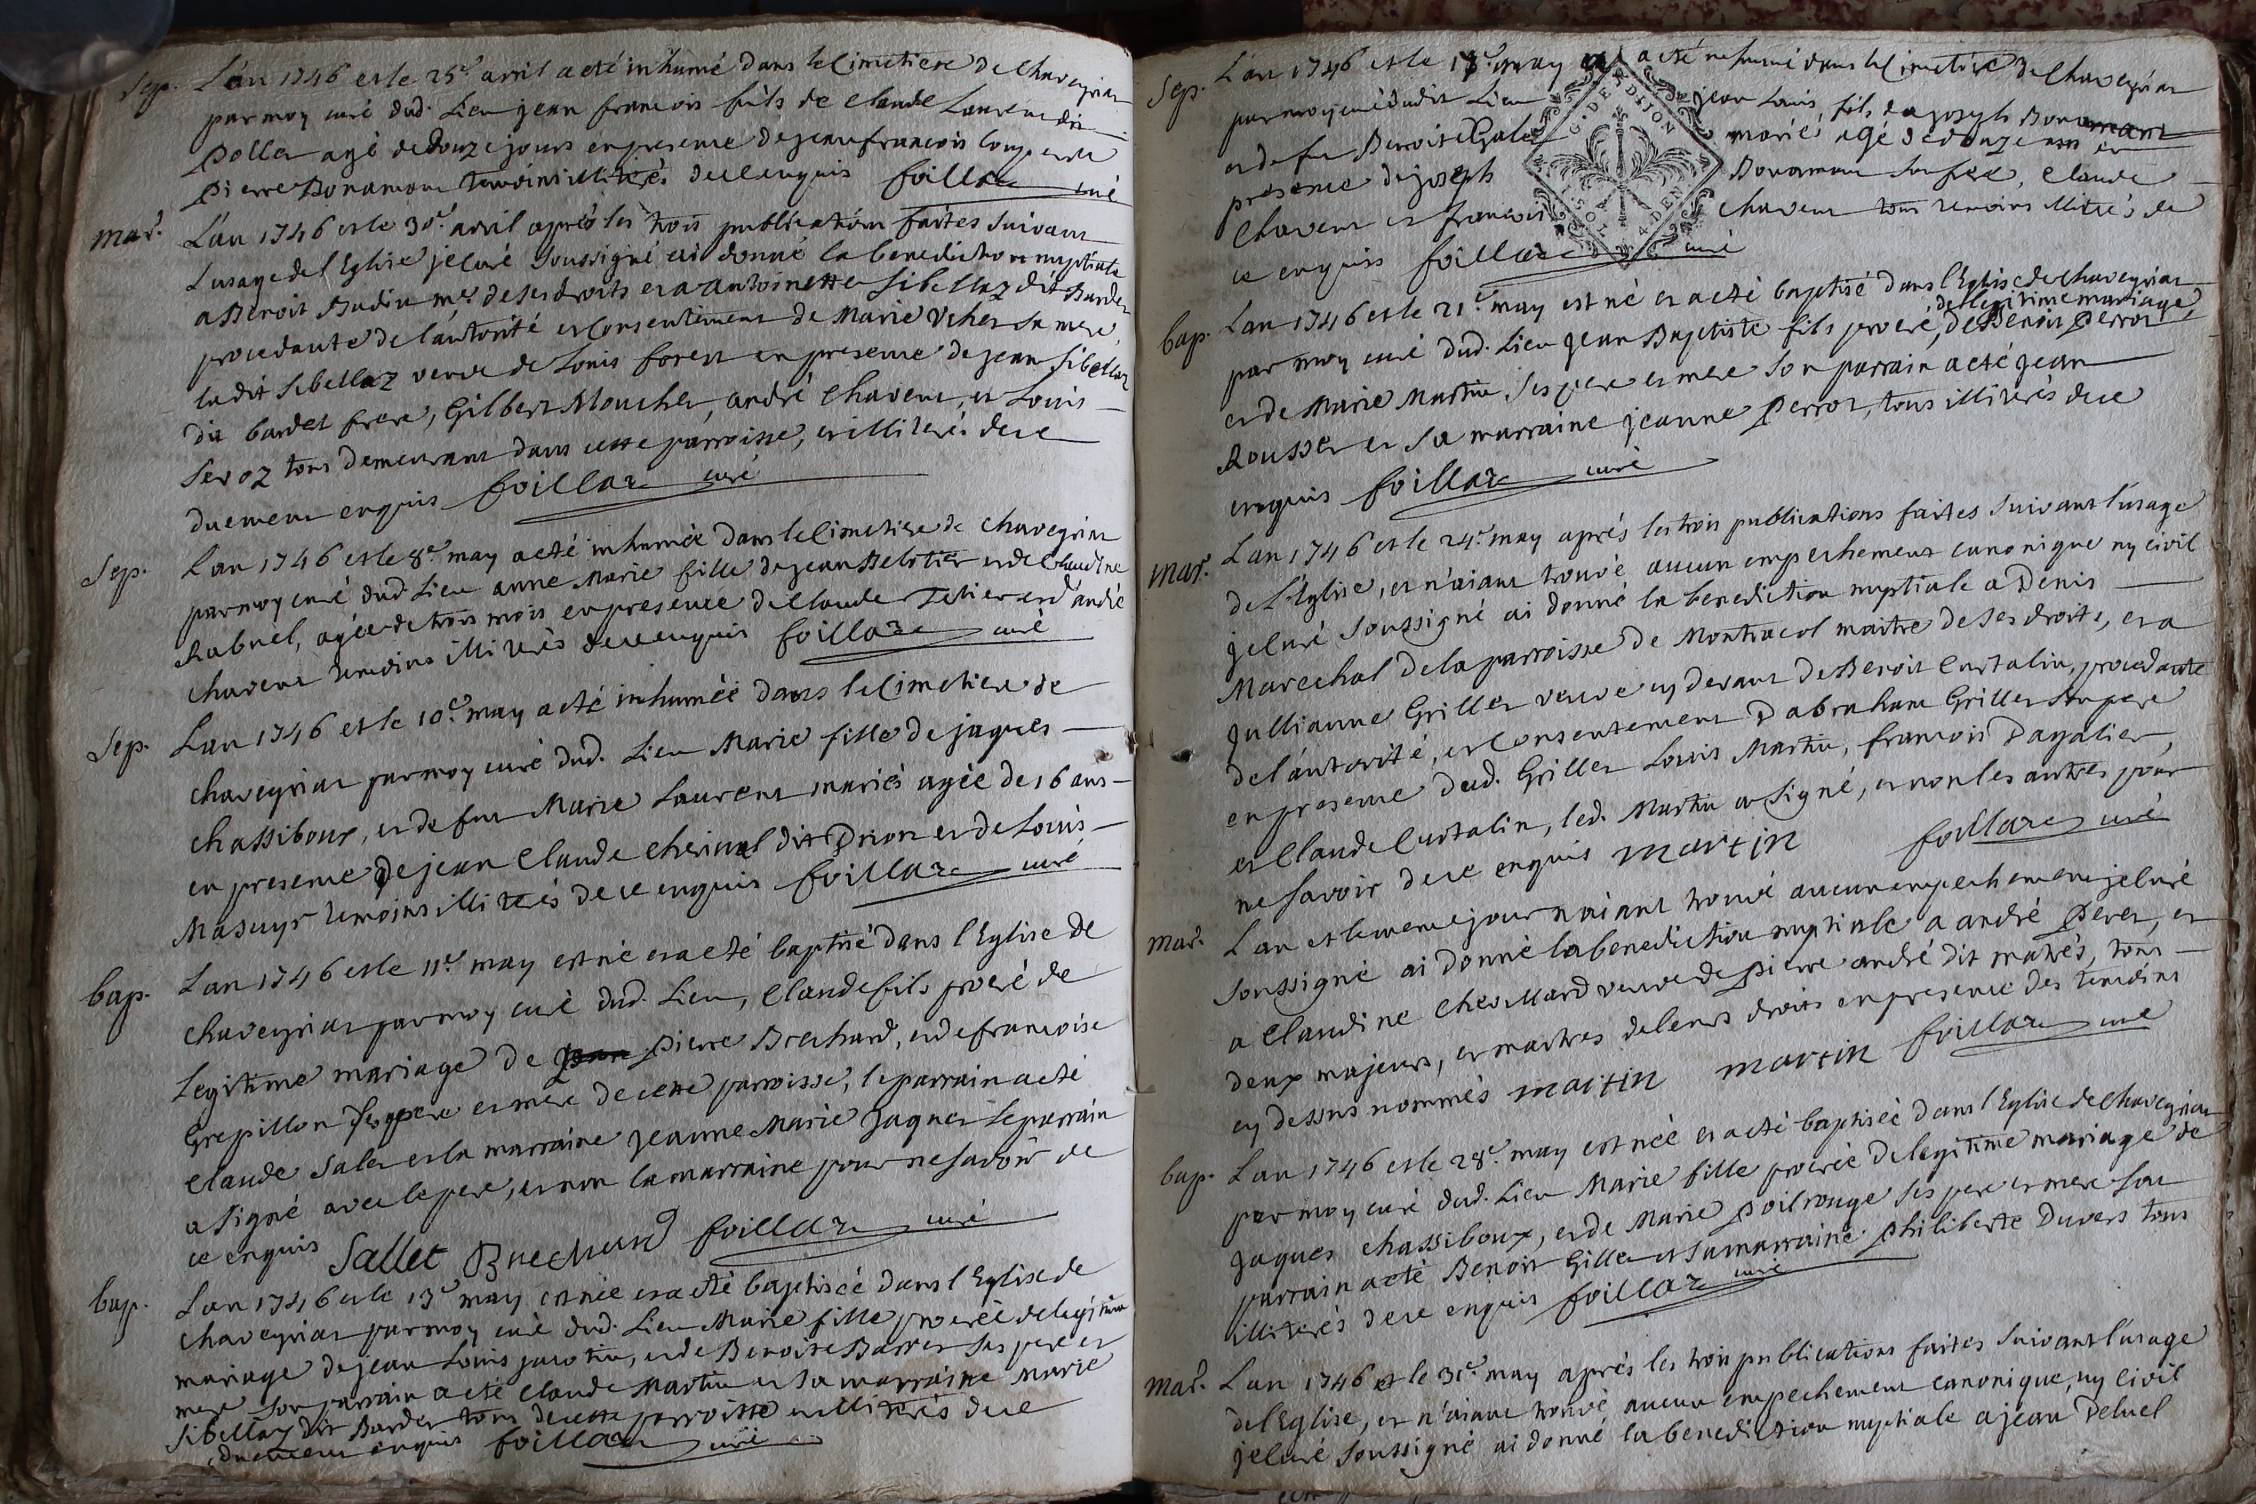 Sep. L'an 1746 et le 25e. avril a eté inhumé dans le Cimetiere de Chaveyriat
par moy curé dud. Lieu jean francois fils de Claude Laurent dit
Pollet agé de douze jours en presence de jean francois
pierre Bonamour temoins illiterés de ce enquis foillar curé
mar. L'an 1746 et le 30e. avril aprés les trois publications faites suivant
l'usage de l'Eglise je curé soussigné ai donné la benediction nuptiale
a Benoit Budin me. de ses droits et a antoinette Sibellaz dit Bardet
procedante de l'autorité et Consentement de Marie Vcher sa mere
ladit Sibellaz veuve de Louis forest en presence de jean Sibellaz
dit bardet frere, Gilbert Mouchet, andré Chavent, et Louis
Seroz tous demeurant dans cette parroisse, et illiterés de ce
duement enquis foillar curé
Sep. L'an 1746 et le 8e. may a eté inhumée dans le Cimetiere de Chaveyriat
par moy curé dud. Lieu anne Marie fille de jean Belotier et de Claudine
Rabuel, agée de trois mois en presence de Claude Tetier et d'andré
Chavent temoins illiterés de ce enquis foillar curé
Sep. L'an 1746 et le 10e. may a eté inhumée dans le Cimetiere de
Chaveyriat par moy curé dud. Lieu Marie fille de jaques
Chassiboux, et de feu Marie Laurent mariés agée de 16 ans
en presence de jean Claude Cherinal dit Drion et de Louis
Masuyr temoins illiterés de ce enquis foillar curé
bap. L'an 1746 et le 11e. may est né et a eté baptisé dans l'Eglise de
Chaveyriat par moy curé dud. Lieu, Claude fils procré de
legitime mariage de pierre Brechard, et de francoise
Grepillon ses pere et mere de cette parroisse, le parrain a eté
Claude Salet et la marraine jeanne Marie jaquet le parrain
a signé avec le pere, et non la marraine pour ne savoir de
ce enquis Sallet Brechard foillar curé
bap. L'an 1746 et le 13e may est née et a eté baptisée dans l'Eglise de
Chaveyriat par moy curé dud. Lieu Marie fille procréé de legitime
mariage de jean Louis jacotin, et de Benoite Barret ses pere et
mere son parrain a eté Claude Martin et sa marraine Marie
Sibellaz dit Bardet tous de cette parroisse et illiterés de ce
duement enquis foillar curé
Sep. L'an 1746 et le 13e. may a eté inhumé dans le Cimetiere de Chaveyriat
par moy curé dudit Lieu jean Louis, fils de joseph Bonamour
et de feu Benoite Galet mariés, agé de douze ans en
presence de joseph Bonamour son frere, Claude
Chavent et francois Chavent tous temoins illiterés de
ce enquis foillar curé
G. DE DIJON
4 DEN
bap. L'an 1746 et le 21e. may est né et a eté baptisé dans l'Eglise de Chaveyriat
par moy curé dud. Lieu jean Baptiste fils procré, de legitime mariage, de Benoit Perrot
et de Marie Martin ses pere et mere son parrain a eté jean
Rousset et sa marraine jeanne Perrot, tous illiterés de ce
enquis foillar curé
mar. L'an 1746 et le 24e. may aprés les trois publications faites suivant l'usage
de l'Eglise, et n'aiant trouvé aucun empechement canonique ny civil
je curé soussigné ai donné la benediction nuptiale a Denis
Marechal de la parroisse de Montracol maitre de ses droits, et a
jullianne Grillet veuve cy devant de Benoit Curtalin, procedante
de l'autorité, et Consentement d'abraham Grillet son pere
en presence dud. Grillet Louis Martin, francois Dagalier,
et Claude Curtalin, led. Martin a signé, et non les autres pour
ne savoir de ce enquis martin foillar curé
mar. L'an et le meme jour n'aiant trouvé aucun empechement je curé
soussigné ai donné la benediction nuptiale a andré Peret, et
a Claudine Chevillard veuve de pierre andré dit matrés, tous
deux majeurs, et maitres de leurs droits en presence des temoins
cy dessus nommés martin martin foillar curé
bap. L'an 1746 et le 28e. may est née et a eté baptisée dans l'Eglise de Chaveyriat
par moy curé dud. Lieu Marie fille procréé de legitime mariage de
jaques Chassiboux, et de Marie Poilrouge ses pere et mere son
parrain a eté Benoit Gillet et sa marraine philiberte Duvers tous
illiterés de ce enquis foillar curé
mar. L'an 1746 et le 31e. may aprés les trois publications faites suivant l'usage
de l'Eglise, et n'aiant trouvé aucun empechement canonique, ny civil
je curé soussigné ai donné la benediction nuptiale a jean Peluel